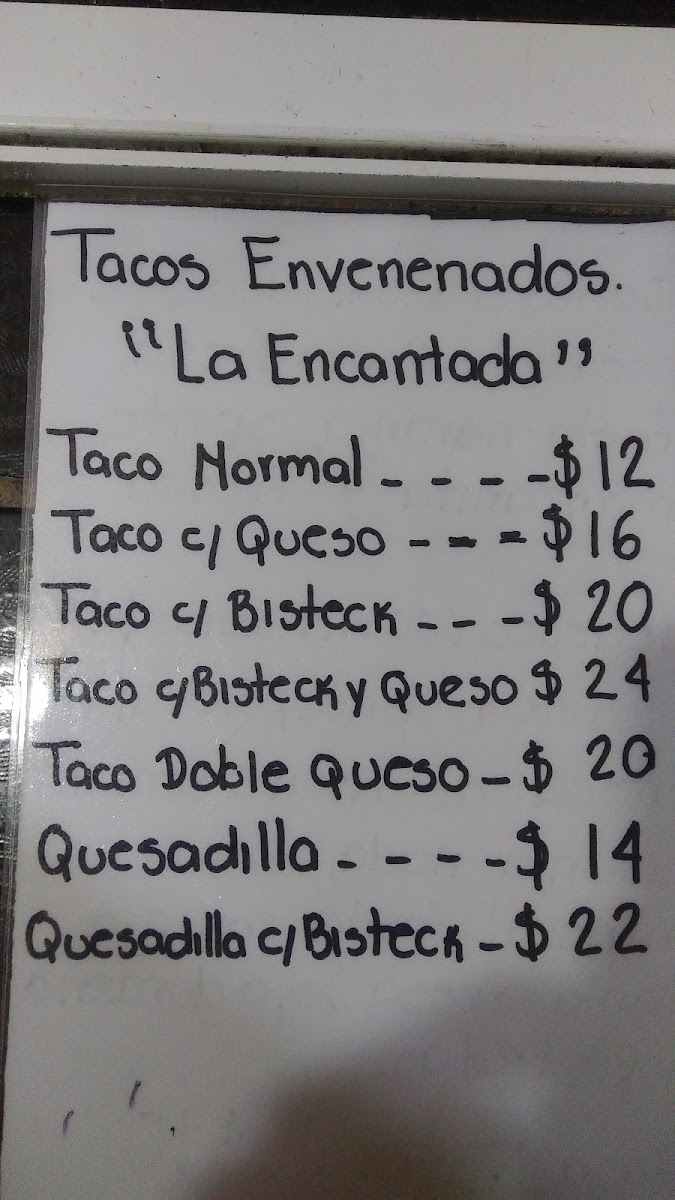 Tacos Envenenados.
"La Encantada"
Taco Normal - - - - $12
Taco c/ Queso - - - $16
Taco c/ Bisteck - - - $ 20
Taco c/Bisteck y Queso $ 24
Taco Doble Queso - $ 20
Quesadilla - - - - $ 14
Quesadilla c/Bisteck - $ 22